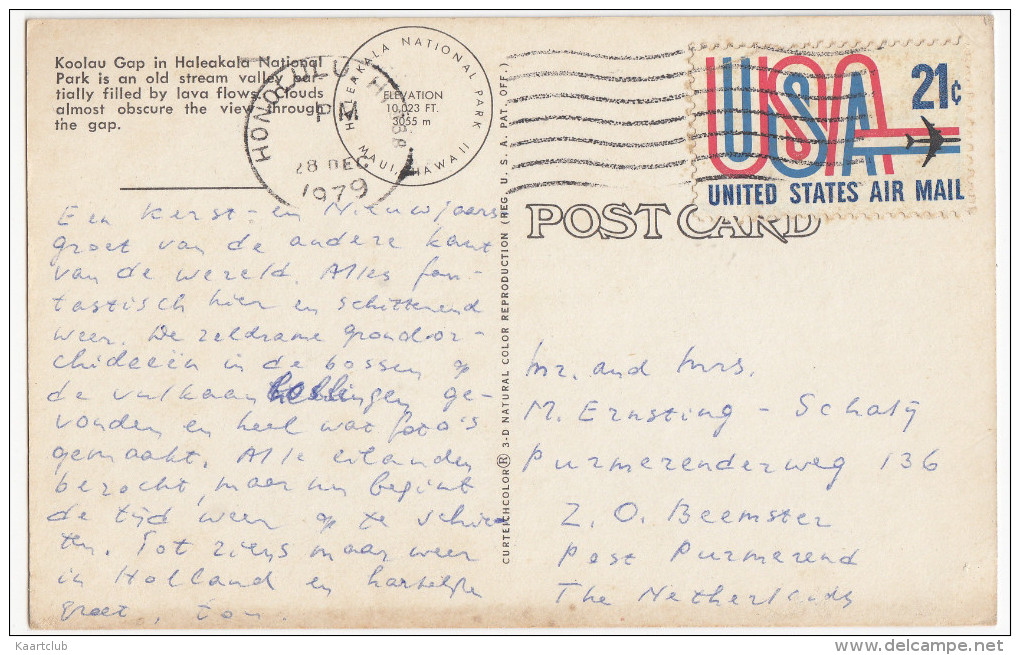 Koolau Gap in Haleakala National
Park is an old stream valley par-
tially filled by lava flows. Clouds
almost obscure the view through
the gap.
HONOLULU, HI
PM
28 DEC
1979
HALEAKALA NATIONAL PARK
ELEVATION
10,023 FT.
3055 m
MAUI, HAWAII
USA
21c
UNITED STATES AIR MAIL
POST CARD
CURTEICHCOLOR® 3-D NATURAL COLOR REPRODUCTION (REG. U.S.A. PAT. OFF.)
Een kerst- en Nieuwjaars
groet van de andere kant
van de wereld. Alles fan-
tastisch hier en schitterend
weer. De zeldzame grondor-
chideeën in de bossen op
de vulkaanhellingen ge-
vonden en heel wat foto's
gemaakt. Alle eilanden
bezocht, maar nu begint
de tijd weer op te schie-
ten. Tot ziens maar weer
in Holland en hartelijke
groet, Ton.
Mr. and Mrs.
M. Ernsting - Schalij
Purmerenderweg 136
Z.O. Beemster
Post Purmerend
The Netherlands
Kaartclub
delcampe.net